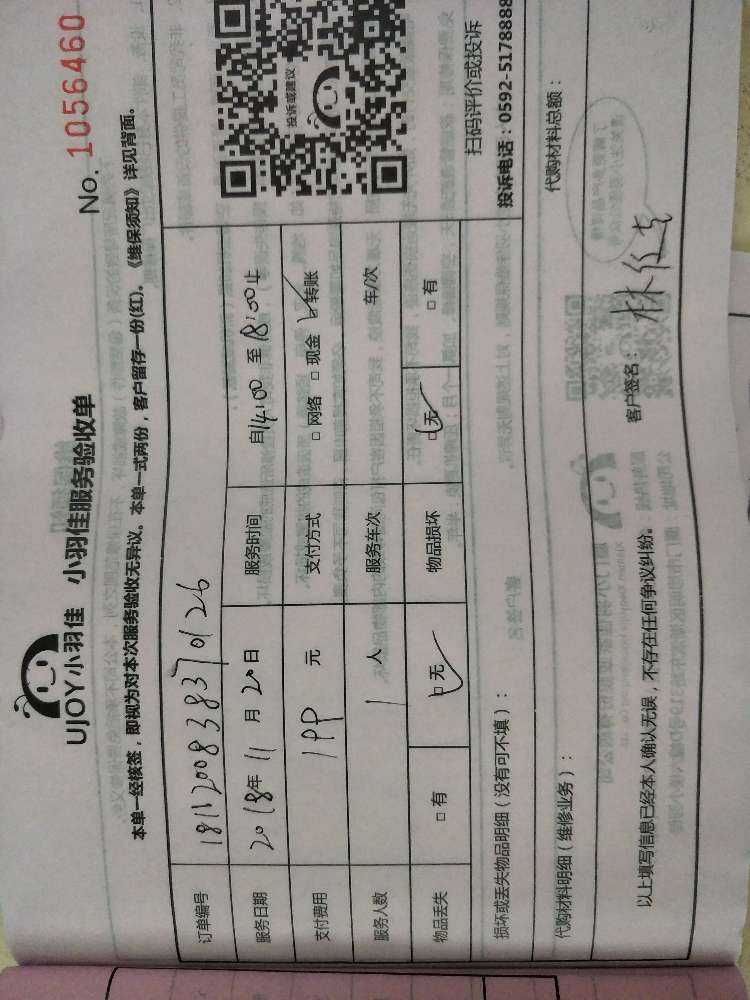 UJOY小羽佳 小羽佳服务验收单
No. 1056460
本单一经核签，即视为对本次服务验收无异议。本单一式两份，客户留存一份(红)。《维保须知》详见背面。
订单编号 1811200838370126
服务日期 2018年11月20日 服务时间 自14:00至18:00止
支付费用 199元 支付方式 □网络 □现金 ☑转账
服务人数 1人 服务车次 车/次
物品丢失 □有 ☑无 物品损坏 ☑无 □有
投诉或建议
扫码评价或投诉
投诉电话：0592-5178888
损坏或丢失物品明细（没有可不填）：
代购材料明细（维修业务）： 代购材料总额：
以上填写信息已经本人确认无误，不存在任何争议纠纷。 客户签名：